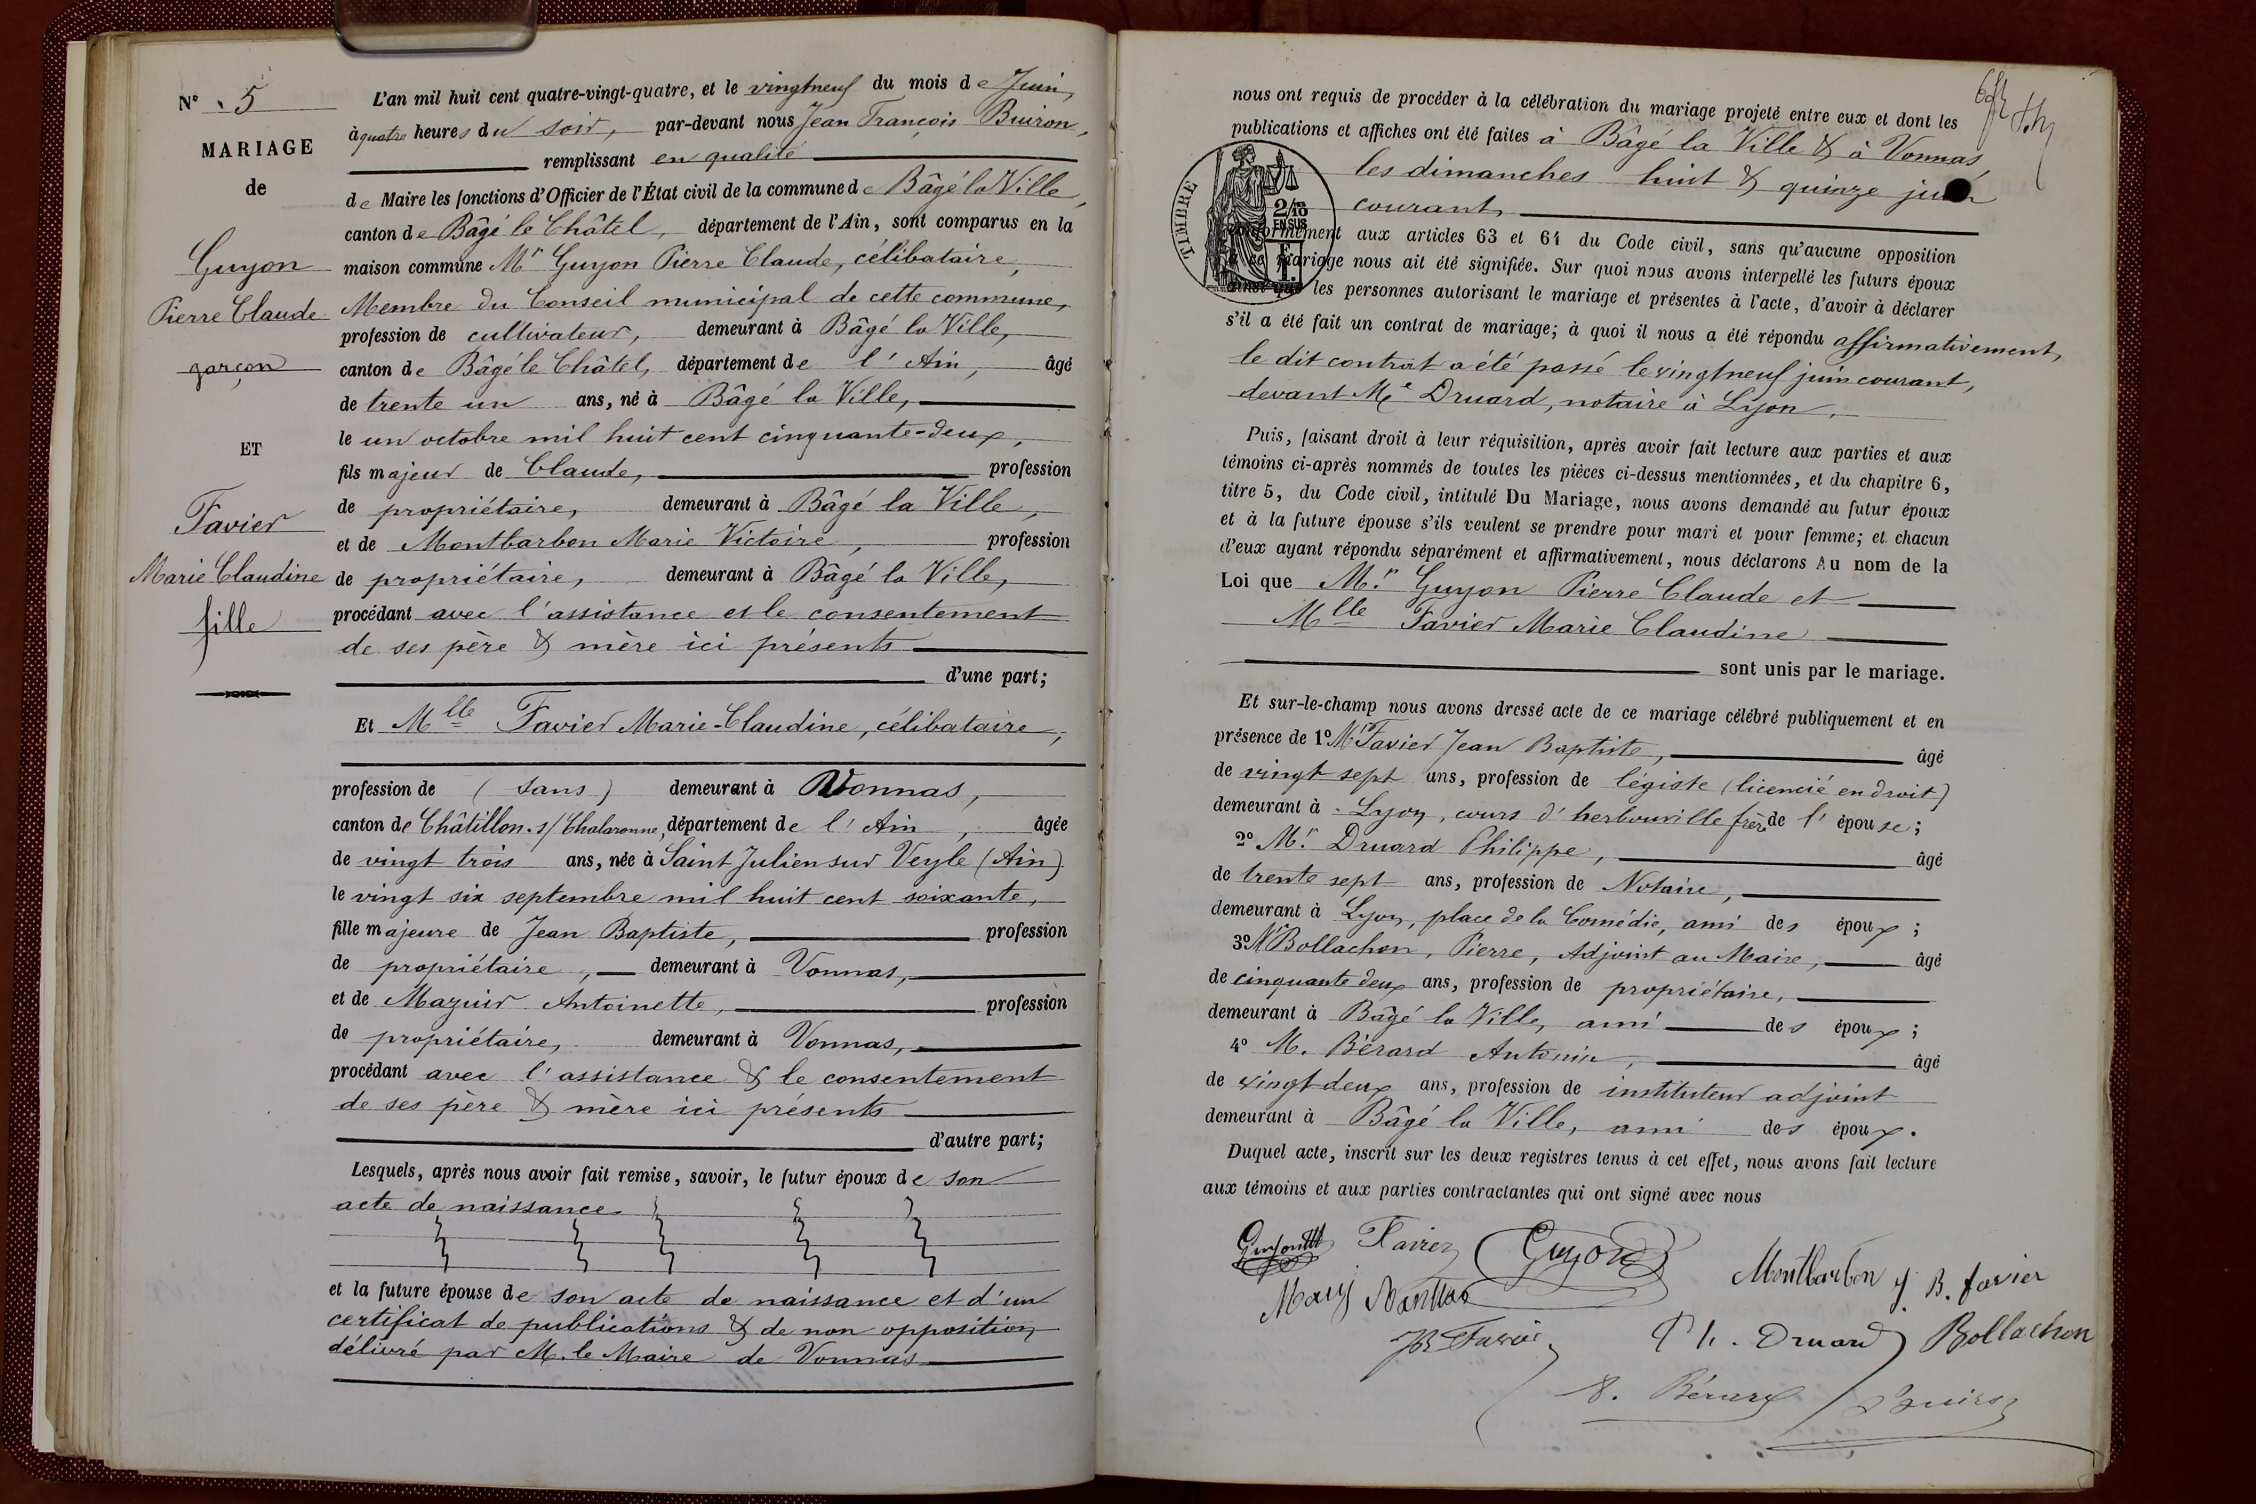 N° 5
MARIAGE
de
Guyon
Pierre Claude
garçon
ET
Favier
Marie Claudine
fille
L'an mil huit cent quatre-vingt-quatre, et le vingtneuf du mois de Juin,
à quatre heures du soir, par-devant nous Jean François Buiron,
remplissant en qualité
de Maire les fonctions d'Officier de l'État civil de la commune de Bâgé la Ville,
canton de Bâgé le Châtel, département de l'Ain, sont comparus en la
maison commune Mr Guyon Pierre Claude, célibataire,
Membre du Conseil municipal de cette commune,
profession de cultivateur, demeurant à Bâgé la Ville,
canton de Bâgé le Châtel, département de l'Ain, âgé
de trente un ans, né à Bâgé la Ville,
le un octobre mil huit cent cinquante-deux,
fils majeur de Claude, profession
de propriétaire, demeurant à Bâgé la Ville,
et de Montbarbon Marie Victoire, profession
de propriétaire, demeurant à Bâgé la Ville,
procédant avec l'assistance et le consentement
de ses père & mère ici présents
d'une part;
Et Mlle Favier Marie-Claudine, célibataire,
profession de (sans) demeurant à Vonnas,
canton de Châtillon s/ Chalaronne, département de l'Ain, âgée
de vingt trois ans, née à Saint Julien sur Veyle (Ain)
le vingt six septembre mil huit cent soixante,
fille majeure de Jean Baptiste, profession
de propriétaire, demeurant à Vonnas,
et de Mazuir Antoinette, profession
de propriétaire, demeurant à Vonnas,
procédant avec l'assistance & le consentement
de ses père & mère ici présents
d'autre part;
Lesquels, après nous avoir fait remise, savoir, le futur époux de son
acte de naissance
et la future épouse de son acte de naissance et d'un
certificat de publications & de non opposition
délivré par M. le Maire de Vonnas
nous ont requis de procéder à la célébration du mariage projeté entre eux et dont les
publications et affiches ont été faites à Bâgé la Ville & à Vonnas
les dimanches huit & quinze juin
courant,
TIMBRE
2/10es
EN SUS
conformément aux articles 63 et 64 du Code civil, sans qu'aucune opposition
à ce mariage nous ait été signifiée. Sur quoi nous avons interpellé les futurs époux
ainsi que les personnes autorisant le mariage et présentes à l'acte, d'avoir à déclarer
s'il a été fait un contrat de mariage; à quoi il nous a été répondu affirmativement,
le dit contrat a été passé le vingtneuf juin courant,
devant Me Druard, notaire à Lyon.
Puis, faisant droit à leur réquisition, après avoir fait lecture aux parties et aux
témoins ci-après nommés de toutes les pièces ci-dessus mentionnées, et du chapitre 6,
titre 5, du Code civil, intitulé Du Mariage, nous avons demandé au futur époux
et à la future épouse s'ils veulent se prendre pour mari et pour femme; et chacun
d'eux ayant répondu séparément et affirmativement, nous déclarons Au nom de la
Loi que Mr Guyon Pierre Claude et
Mlle Favier Marie Claudine
sont unis par le mariage.
Et sur-le-champ nous avons dressé acte de ce mariage célébré publiquement et en
présence de 1° Mr Favier Jean Baptiste, âgé
de vingt sept ans, profession de légiste (licencié en droit)
demeurant à Lyon, cours d'herbouville frère de l'épouse;
2° Mr Druard Philippe, âgé
de trente sept ans, profession de Notaire,
demeurant à Lyon, place de la Comédie, ami des époux;
3° Mr Bollachon, Pierre, Adjoint au Maire, âgé
de cinquante deux ans, profession de propriétaire,
demeurant à Bâgé la Ville, ami des époux;
4° M. Bérard Antonin, âgé
de vingt deux ans, profession de instituteur adjoint
demeurant à Bâgé la Ville, ami des époux.
Duquel acte, inscrit sur les deux registres tenus à cet effet, nous avons fait lecture
aux témoins et aux parties contractantes qui ont signé avec nous
Favier Guyon Montbarbon J. B. favier
JB Favier Ph. Druard Bollachon
Bérard Buiron